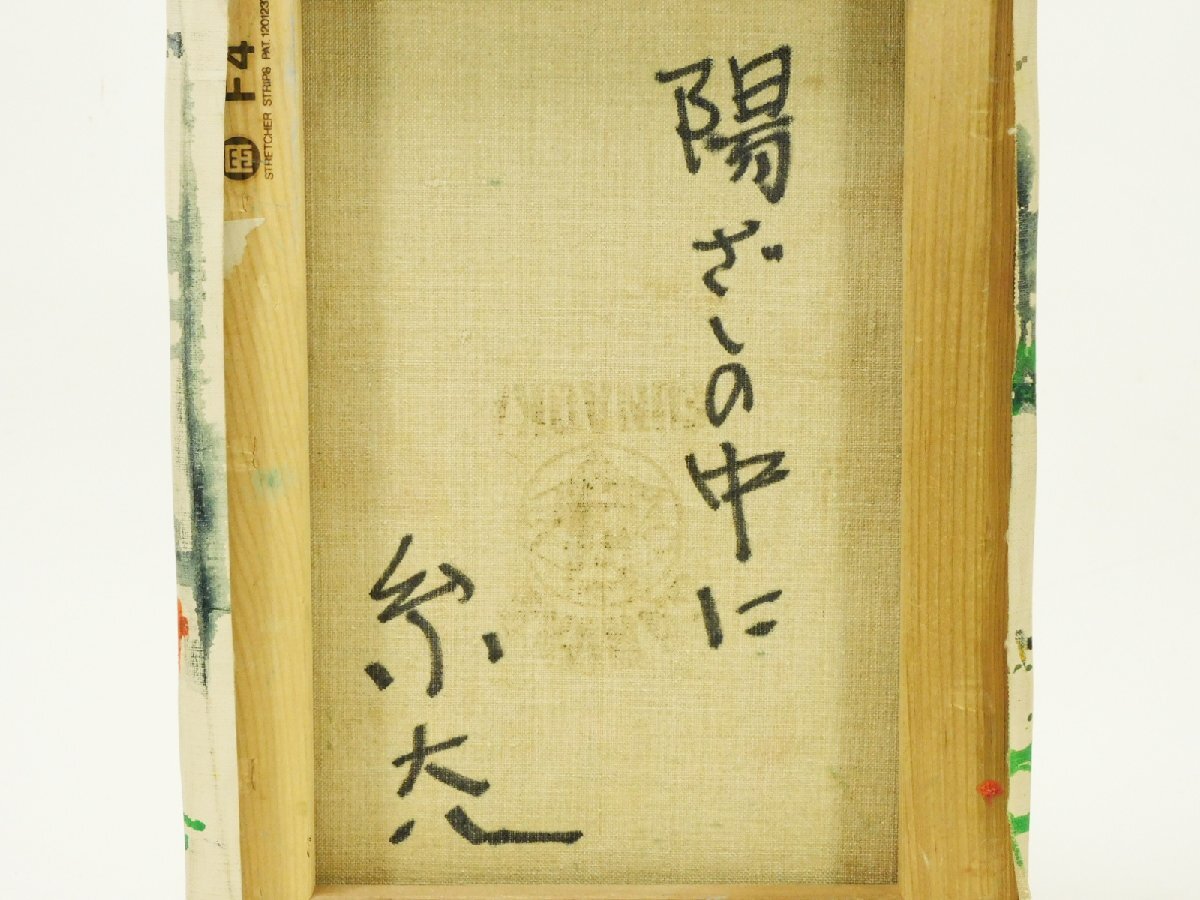 陽ざしの中に
糸大八
F4
STRETCHER STRIPS PAT. 120123